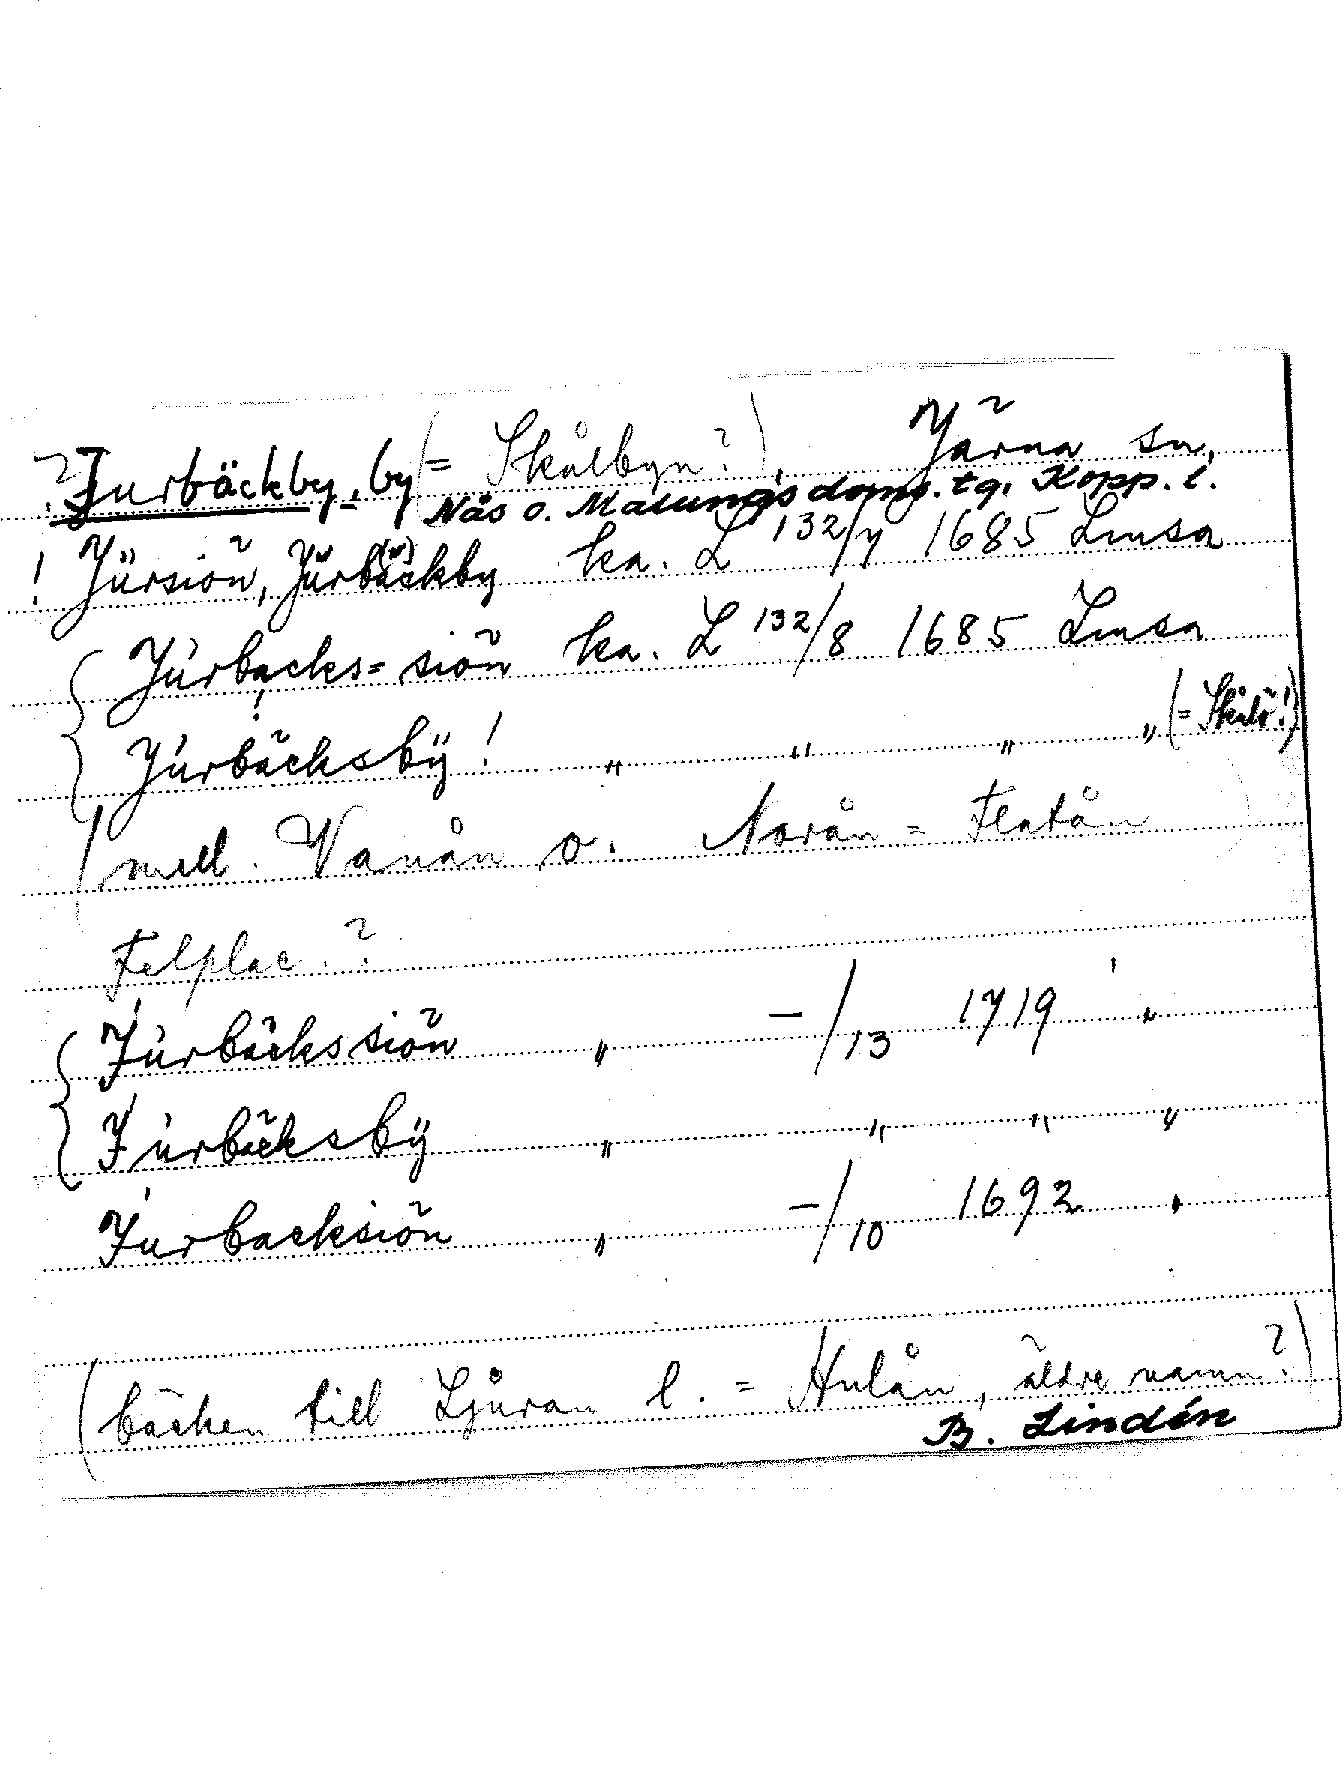 ? Jurbäckby, by (= Skålbyn?), Järna sn,
Nås o. Malungs doms. tg. Kopp. l.
! Jürsiön, Jurbäckby ka. L 132/7 1685 Lmsa
Jurbacks=siön ka. L 132/8 1685 Lmsa
Jurbäcksbÿ! " " " " (= Skålö!)
(mell. Vanån o. Norån = Flatån)
Felplac.?
Jurbäckssiön " –/13 1719 "
Jurbäcksbÿ " " " "
Jurbacksiön " –/10 1692 "
(bäcken till Ljuran l. = Hulån, äldre namn?)
B. Lindén